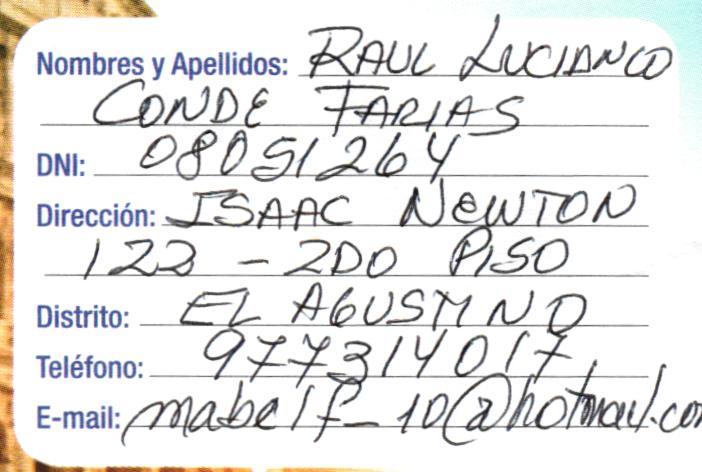 Nombres y Apellidos: RAUL LUCIANCO
CONDE FARIAS
DNI: 08051264
Dirección: ISAAC NEWTON
123 - 2DO PISO
Distrito: EL AGUSTINO
Teléfono: 977314017
E-mail: mabelf_10@hotmail.com